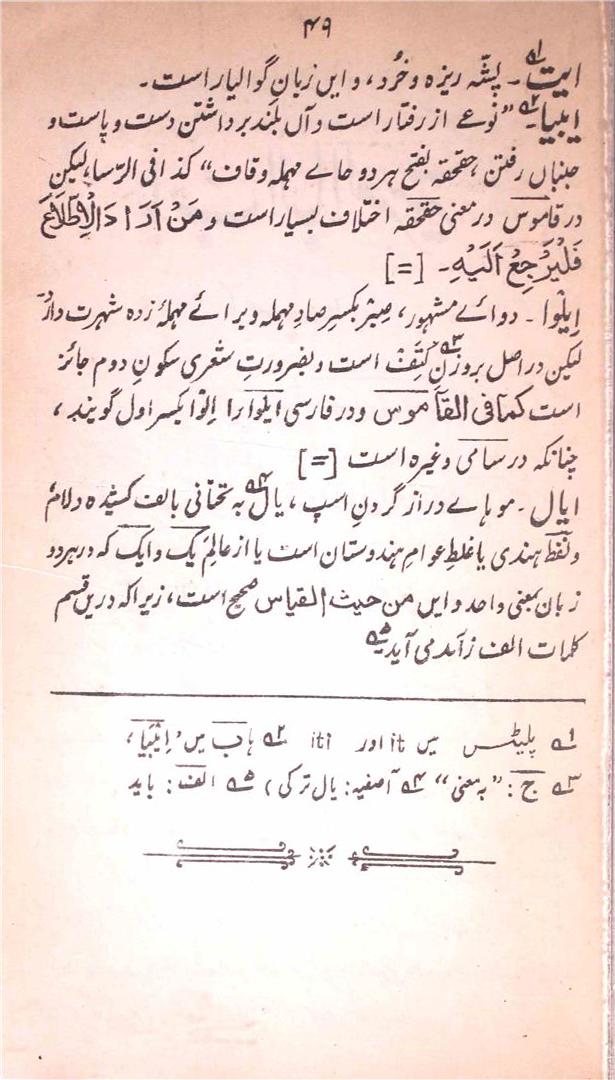 ۴۹
ایت۱؎۔ پشّہ ریزہ و خُرد، و ایں زبانِ گوالیار است۔
اینبیا۲؎۔ "نوعے از رفتار است و آں بلند برداشتن دست و پاست و
جنباں رفتن، حقحقہ بفتح ہر دو حاے مہملہ وقاف" کذا فی الرّسا، لیکن
در قاموس در معنی حقحقہ اختلاف بسیار است و مَنْ اَرَادَ الْاِطّلَاعَ
فَلْیَرْجِعْ اِلَیْہِ۔ [=]
اِیلْوا۔ دوائے مشہور، صِبْر بکسرِ صادِ مہملہ و برائے مہملۂ زدہ شہرت دارَد
لیکن در اصل بروزنِ۳؎ کَتِف است و بضرورتِ شعری سکونِ دوم جائز
است کما فی القاموس و در فارسی ایلوا را اِلوْا بکسر اول گویند،
چنانکہ در سامی وغیرہ است [=]
ایال۔ موہاے دراز گردنِ اسپ، یال۴؎ بہ تحتانی بالف کشیدہ ولامؐ
و لفظ ہندی یا غلطِ عوام ہندوستان است یا از عالمِ یک و ایک کہ در ہر دو
زبان بمعنی واحد و ایں من حیث القیاس صحیح است، زیرا کہ دریں قسم
کلمات الف زاید می آید۵؎
۱؎ پلیٹس میں it اور iti ۲؎ ہاب میں 'اِیْنبیَا'،
۳؎ ج: "بہ معنی" ۴؎ آصفیہ: یال ترکی، ۵؎ الف: باید